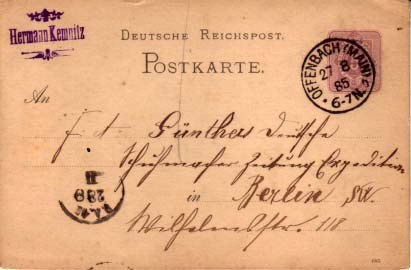 Hermann Kemnitz
DEUTSCHE REICHSPOST.
POSTKARTE.
OFFENBACH (MAIN)
27 8
85
6-7N.
An
F. A. Günthers Deutsche
Schuhmacher Zeitung Expedition
in Berlin SW
Wilhelmstr. 118
289